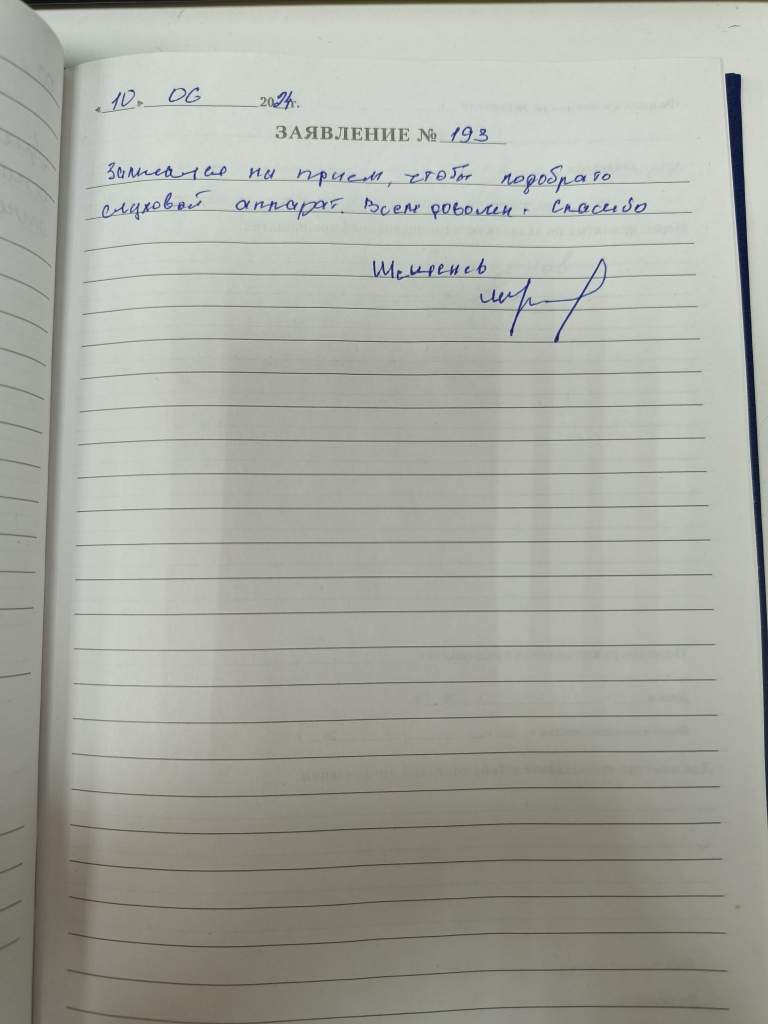 « 10 » 06 2024г.
ЗАЯВЛЕНИЕ № 193
Записался на прием, чтобы подобрать
слуховой аппарат. Всем доволен. Спасибо